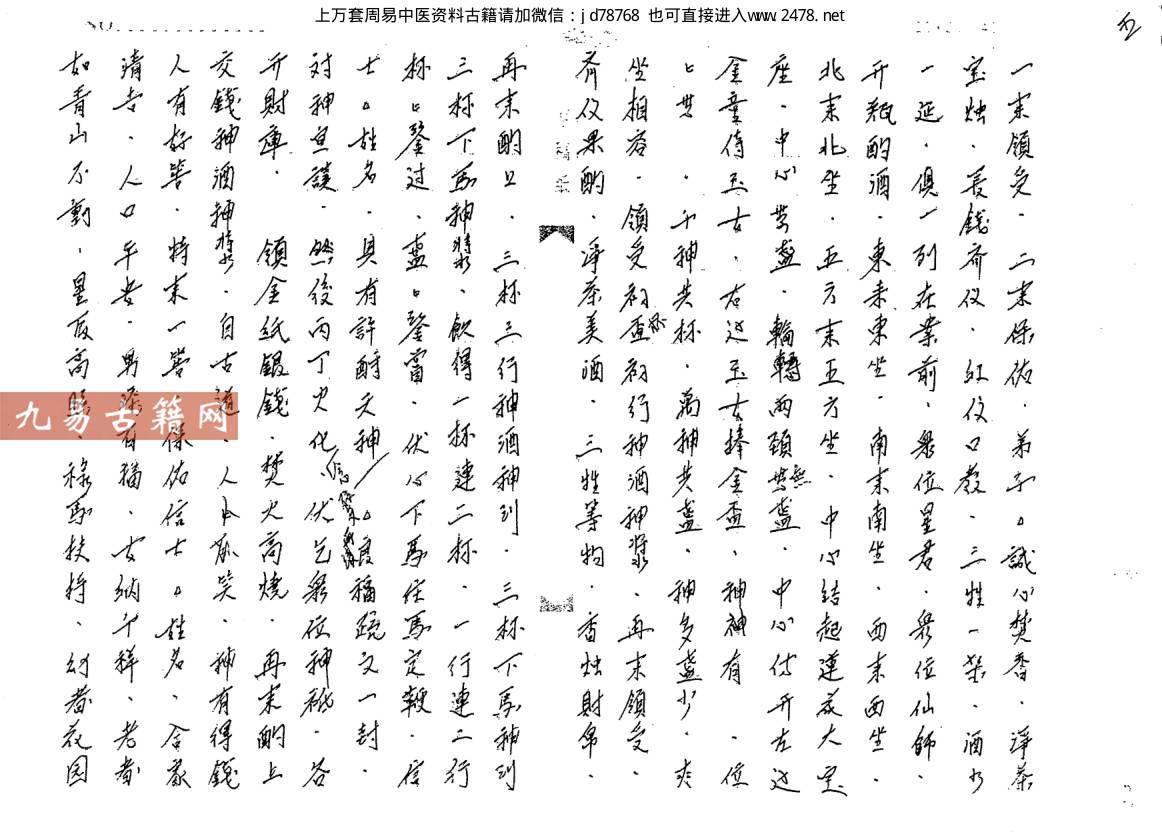 上万套周易中医资料古籍请加微信：jd78768 也可直接进入www.2478.net
一来領受．二来保佑．弟子。誠心焚香．淨茶
宝烛．長錢齐仪．红仪口教．三牲一架．酒
一延．俱一列在案前．眾位星君．眾位仙師．
开瓶酌酒．東来東坐．南来南坐．西来西坐．
北来北坐．五方来五方坐．中心结起蓮花大宝
座．中心盏．輪轉两頭盏．中心付开左边
金童侍玉女．右边玉女捧金盃．神神有．位
共．千神共杯．萬神共盏．神多盏少．
坐相容．領受初盃初行神酒神漿．再来領受．
齐仪果酌．淨茶美酒．三牲等物．香烛財帛．
再来酌上．三杯三行神酒神到．三杯下馬神到
三杯下馬神將．飲得一杯連二杯．一行連二行
杯鑒过．盞鑒當．伏心下馬住馬定鞭．信
士。姓名．具有許酧天神。良福疏文一封．
对神宣讀．然後丙丁火化．伏乞眾位神祗．各
开財庫．領金紙銀錢．焚火高燒．再来酌上
交錢神酒神將．自古道．人笑．神有得錢
人有好．特来一保佑信士。姓名．合家
清吉．人口平安．男添百福．女納千祥．老者
如青山不動．星辰高照．祿馬扶持．幼者花园
九易古籍网